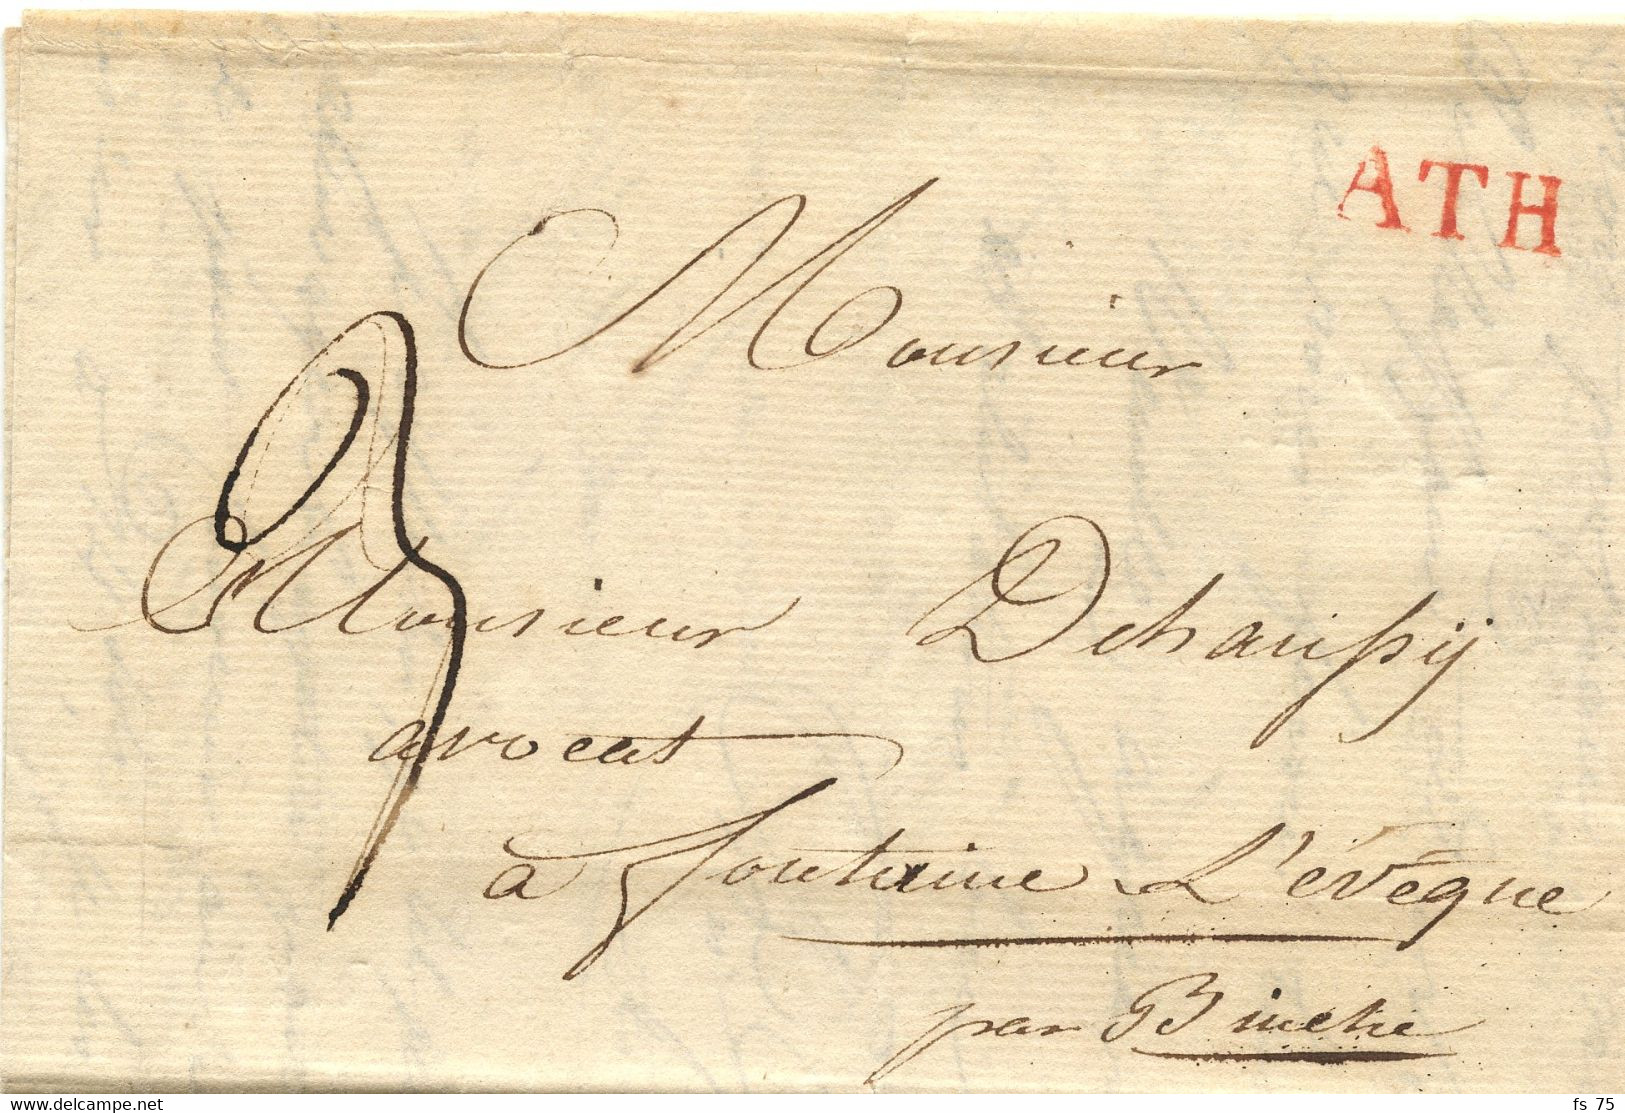 ATH
Monsieur
3
Monsieur Dehaussÿ
avocat
à fontaine L'évêque
par Binche
www.delcampe.net
fs 75